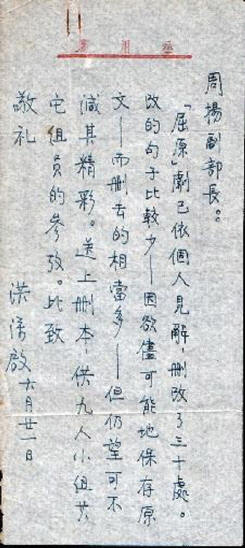 周揚副部長。
「屈原」劇已依個人見解，刪改了三十處。
改的句子比較少——因欲儘可能地保存原
文——而刪去的相當多——但仍望可不
減其精彩。送上刪本，供九人小組其
它組員的參攷。此致
敬礼
洪深啟 六月廿一日